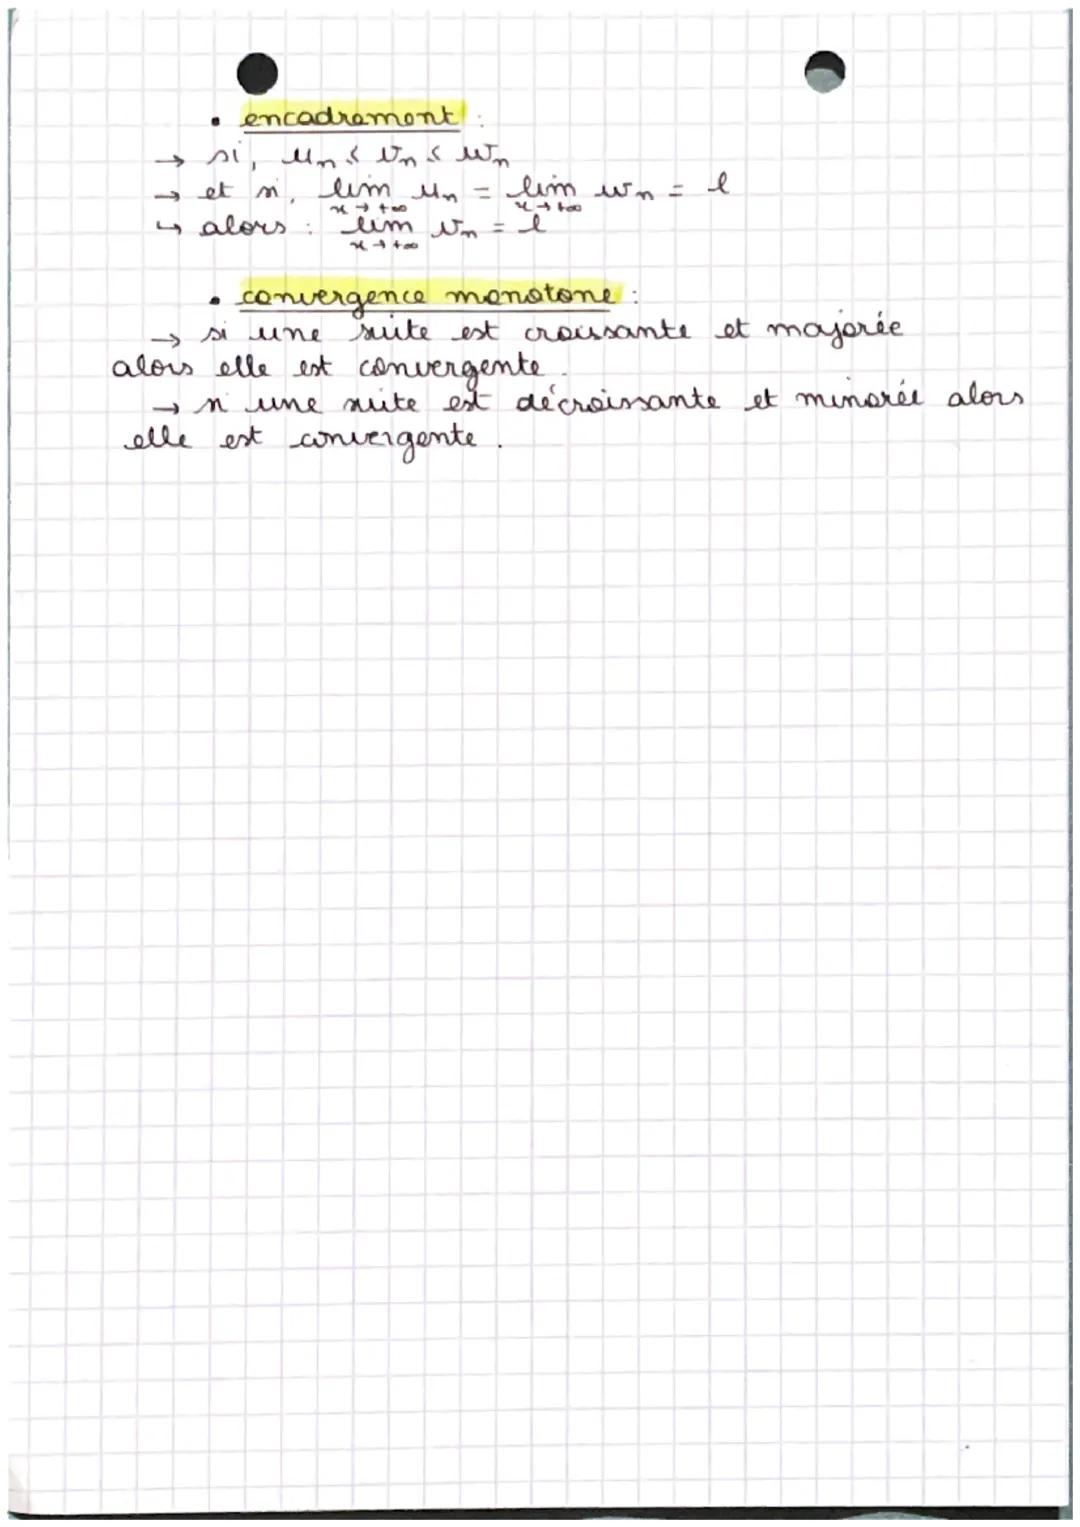 • encadrement :
→ si, un ≤ vn ≤ wn
→ et si, lim un = lim wn = l
x → +∞ x → +∞
↳ alors : lim vn = l
x → +∞
• convergence monotone :
→ si une suite est croissante et majorée
alors elle est convergente.
→ si une suite est décroissante et minorée alors
elle est convergente.